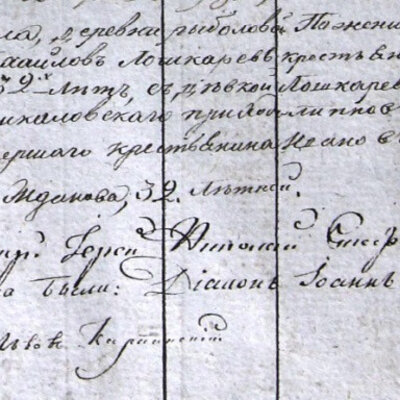 ла, деревни рыболова Пожени
хаиловъ Лошкаревъ крестьян
32х лѣтъ, съ дѣвкой Лошкарев
ихаловскаго прихода
ершаго крестьянина
Жданова, 32. лѣтней.
Iерей Николай
а были: Дiаконъ Iоаннъ
Каринскiй